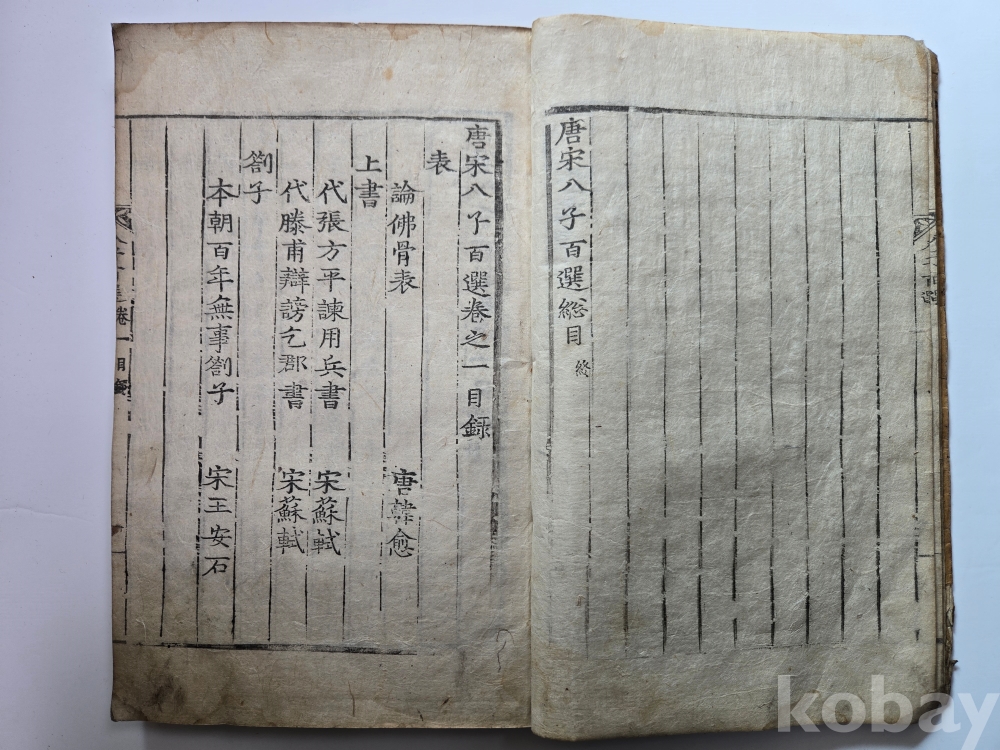 唐宋八子百選總目 終
唐宋八子百選卷之一目錄
表
論佛骨表 唐韓愈
上書
代張方平諫用兵書 宋蘇軾
代滕甫辯謗乞郡書 宋蘇軾
劄子
本朝百年無事劄子 宋王安石
kobay